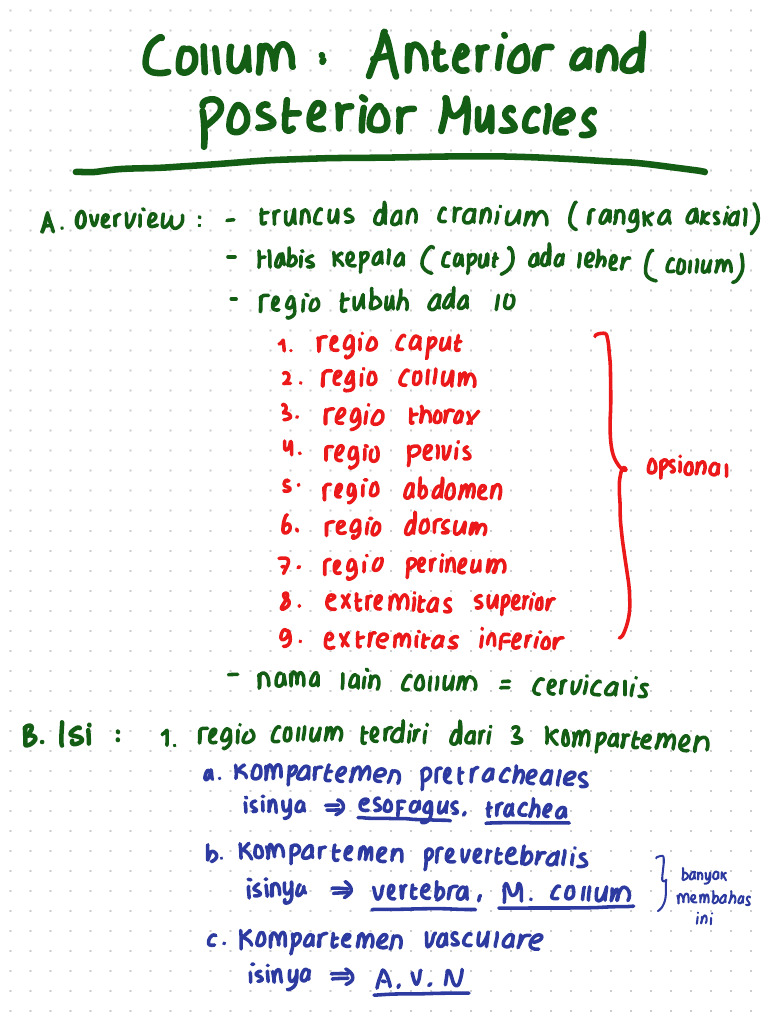 Collum : Anterior and
Posterior Muscles
A. Overview : - truncus dan cranium (rangka aksial)
- Habis kepala (caput) ada leher (collum)
- regio tubuh ada 10
1. regio caput
2. regio collum
3. regio thorax
4. regio pelvis
5. regio abdomen
6. regio dorsum
7. regio perineum
8. extremitas superior
9. extremitas inferior
opsional
- nama lain collum = cervicalis
B. Isi : 1. regio collum terdiri dari 3 kompartemen
a. Kompartemen pretracheales
isinya ⇒ esofagus, trachea
b. Kompartemen prevertebralis
isinya ⇒ vertebra, M. collum
banyak
membahas
ini
c. Kompartemen vasculare
isinya ⇒ A. V. N